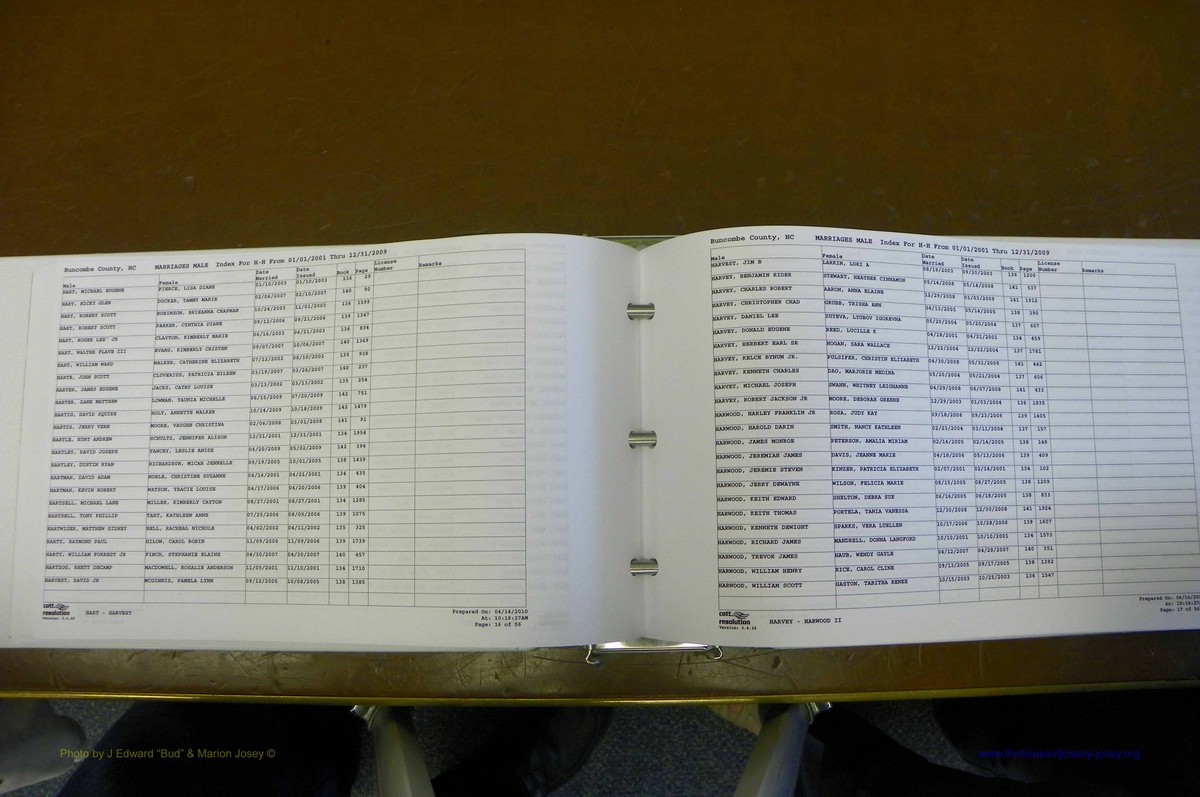 Buncombe County, NC MARRIAGES MALE Index For H-H From 01/01/2001 Thru 12/31/2009
Male Female Date Married Date Issued Book Page License Number Remarks
HART, MICHAEL EUGENE PIERCE, LISA DIANE 01/10/2003 01/10/2003 136 28
HART, RICKY GLEN DUCKER, TAMMY MARIE 02/08/2007 02/10/2007 140 90
HART, ROBERT SCOTT ROBINSON, BRIEANNA CHAPMAN 10/24/2003 11/01/2003 136 1599
HART, ROBERT SCOTT PARKER, CYNTHIA DIANE 09/12/2006 09/21/2006 139 1347
HART, ROGER LEE JR CLAYTON, KIMBERLY MARIE 04/16/2003 04/21/2003 136 834
HART, WALTER FLAVE III EVANS, KIMBERLY CRISTEN 09/07/2007 10/06/2007 140 1369
HART, WILLIAM WARD WALKER, CATHERINE ELIZABETH 07/12/2002 08/10/2002 135 938
HARTE, JOHN SCOTT CLOVERIUS, PATRICIA EILEEN 03/19/2007 03/24/2007 140 237
HARTER, JAMES EUGENE JACKS, CATHY LOUISE 03/13/2002 03/13/2002 135 254
HARTER, DANE MATTHEW LOWMAN, TAUNIA MICHELLE 06/15/2009 07/20/2009 142 751
HARTIG, DAVID SQUIRE HOLT, ANNETTE WALKER 10/14/2009 10/18/2009 142 1479
HARTIS, JERRY VERN MOORE, VAUGHN CHRISTINA 02/06/2008 03/01/2008 141 91
HARTLE, KURT ANDREW SCHULTZ, JENNIFER ALISON 12/31/2001 12/31/2001 134 1954
HARTLEY, DAVID JOSEPH YANCEY, LESLIE AMISE 04/20/2009 05/02/2009 142 394
HARTLEY, DUSTIN RYAN RICHARDSON, MICAH JENNELLE 09/19/2005 10/01/2005 138 1439
HARTMAN, DAVID ADAM NOBLE, CHRISTINE SUZANNE 04/16/2001 04/21/2001 134 435
HARTMAN, KEVIN ROBERT WATSON, TRACIE LOUISE 04/17/2006 04/20/2006 139 404
HARTSELL, MICHAEL LANE MILLER, KIMBERLY CAYTON 08/27/2001 08/27/2001 134 1285
HARTSELL, TONY PHILLIP TART, KATHLEEN ANNE 07/25/2006 08/05/2006 139 1075
HARTWIGER, MATTHEW SIDNEY BELL, RACHEAL NICHOLE 04/02/2002 04/11/2002 135 325
HARTY, RAYMOND PAUL HILOW, CAROL ROBIN 11/09/2006 11/09/2006 139 1739
HARTY, WILLIAM FORREST JR FINCH, STEPHANIE ELAINE 04/30/2007 04/30/2007 140 457
HARTZOG, RHETT DECAMP MACDOWELL, ROSALIE ANDERSON 11/05/2001 11/10/2001 134 1710
HARVEST, DAVID JR MCGINNIS, PAMELA LYNN 09/12/2005 10/08/2005 138 1385
cott
resolution
Version: 2.6.26
HART - HARVEST
Prepared On: 04/14/2010
At: 10:18:27AM
Page: 16 of 56
Buncombe County, NC MARRIAGES MALE Index For H-H From 01/01/2001 Thru 12/31/2009
Male Female Date Married Date Issued Book Page License Number Remarks
HARVEST, JIM B LARKIN, LORI A 08/19/2003 09/20/2003 136 1200
HARVEY, BENJAMIN RIDER STEWART, HEATHER CINNAMON 05/14/2008 05/14/2008 141 537
HARVEY, CHARLES ROBERT AARON, ANNA ELAINE 12/29/2008 01/03/2009 141 1912
HARVEY, CHRISTOPHER CHAD GRUEB, TRISHA ANN 04/13/2005 05/14/2005 138 390
HARVEY, DANIEL LEE GUYEVA, LYUBOV IGOREVNA 05/20/2004 05/20/2004 137 607
HARVEY, DONALD EUGENE REED, LUCILLE K 04/18/2001 04/21/2001 134 459
HARVEY, HERBERT EARL SR HOGAN, SARA WALLACE 12/22/2004 12/22/2004 137 1781
HARVEY, KELCE BYNUM JR. PULSIFER, CHRISTIN ELIZABETH 04/30/2008 05/31/2008 141 462
HARVEY, KENNETH CHARLES DAO, MARJORIE MEDINA 05/20/2004 05/21/2004 137 606
HARVEY, MICHAEL JOSEPH SWANN, WHITNEY LEIGHANNE 04/29/2008 06/07/2008 141 453
HARVEY, ROBERT JACKSON JR MOORE, DEBORAH GREENE 12/29/2003 01/03/2004 136 1835
HARWOOD, HARLEY FRANKLIN JR ROSA, JUDY KAY 09/18/2006 09/23/2006 139 1405
HARWOOD, HAROLD DARIN SMITH, NANCY KATHLEEN 02/23/2004 03/11/2004 137 157
HARWOOD, JAMES MONROE PETERSON, AMALIA MIRIAM 02/14/2005 02/14/2005 138 148
HARWOOD, JEREMIAH JAMES DAVIS, JEANNE MARIE 04/18/2006 05/13/2006 139 409
HARWOOD, JEREMIE STEVEN KINZER, PATRICIA ELIZABETH 02/07/2001 02/14/2001 134 102
HARWOOD, JERRY DEWAYNE WILSON, FELICIA MARIE 08/15/2005 08/27/2005 138 1209
HARWOOD, KEITH EDWARD SHELTON, DEBRA SUE 06/16/2005 06/18/2005 138 833
HARWOOD, KEITH THOMAS PORTELA, TANIA VANESSA 12/30/2008 12/30/2008 141 1924
HARWOOD, KENNETH DEWIGHT SPARKS, VERA LUELLEN 10/17/2006 10/28/2006 139 1607
HARWOOD, RICHARD JAMES MANDRELL, DONNA LANGFORD 10/10/2001 10/10/2001 134 1573
HARWOOD, TREVOR JAMES HAUB, WENDY GAYLE 04/12/2007 04/28/2007 140 351
HARWOOD, WILLIAM HENRY RICE, CAROL CLINE 09/13/2005 09/17/2005 138 1392
HARWOOD, WILLIAM SCOTT GASTON, TABITHA RENEE 10/15/2003 10/25/2003 136 1547
cott
resolution
Version: 2.6.26
HARVEY - HARWOOD II
Prepared On: 04/14/201
At: 10:18:27
Page: 17 of 56
Photo by J Edward "Bud" & Marion Josey ©
www.thehouseofjossey-josey.org